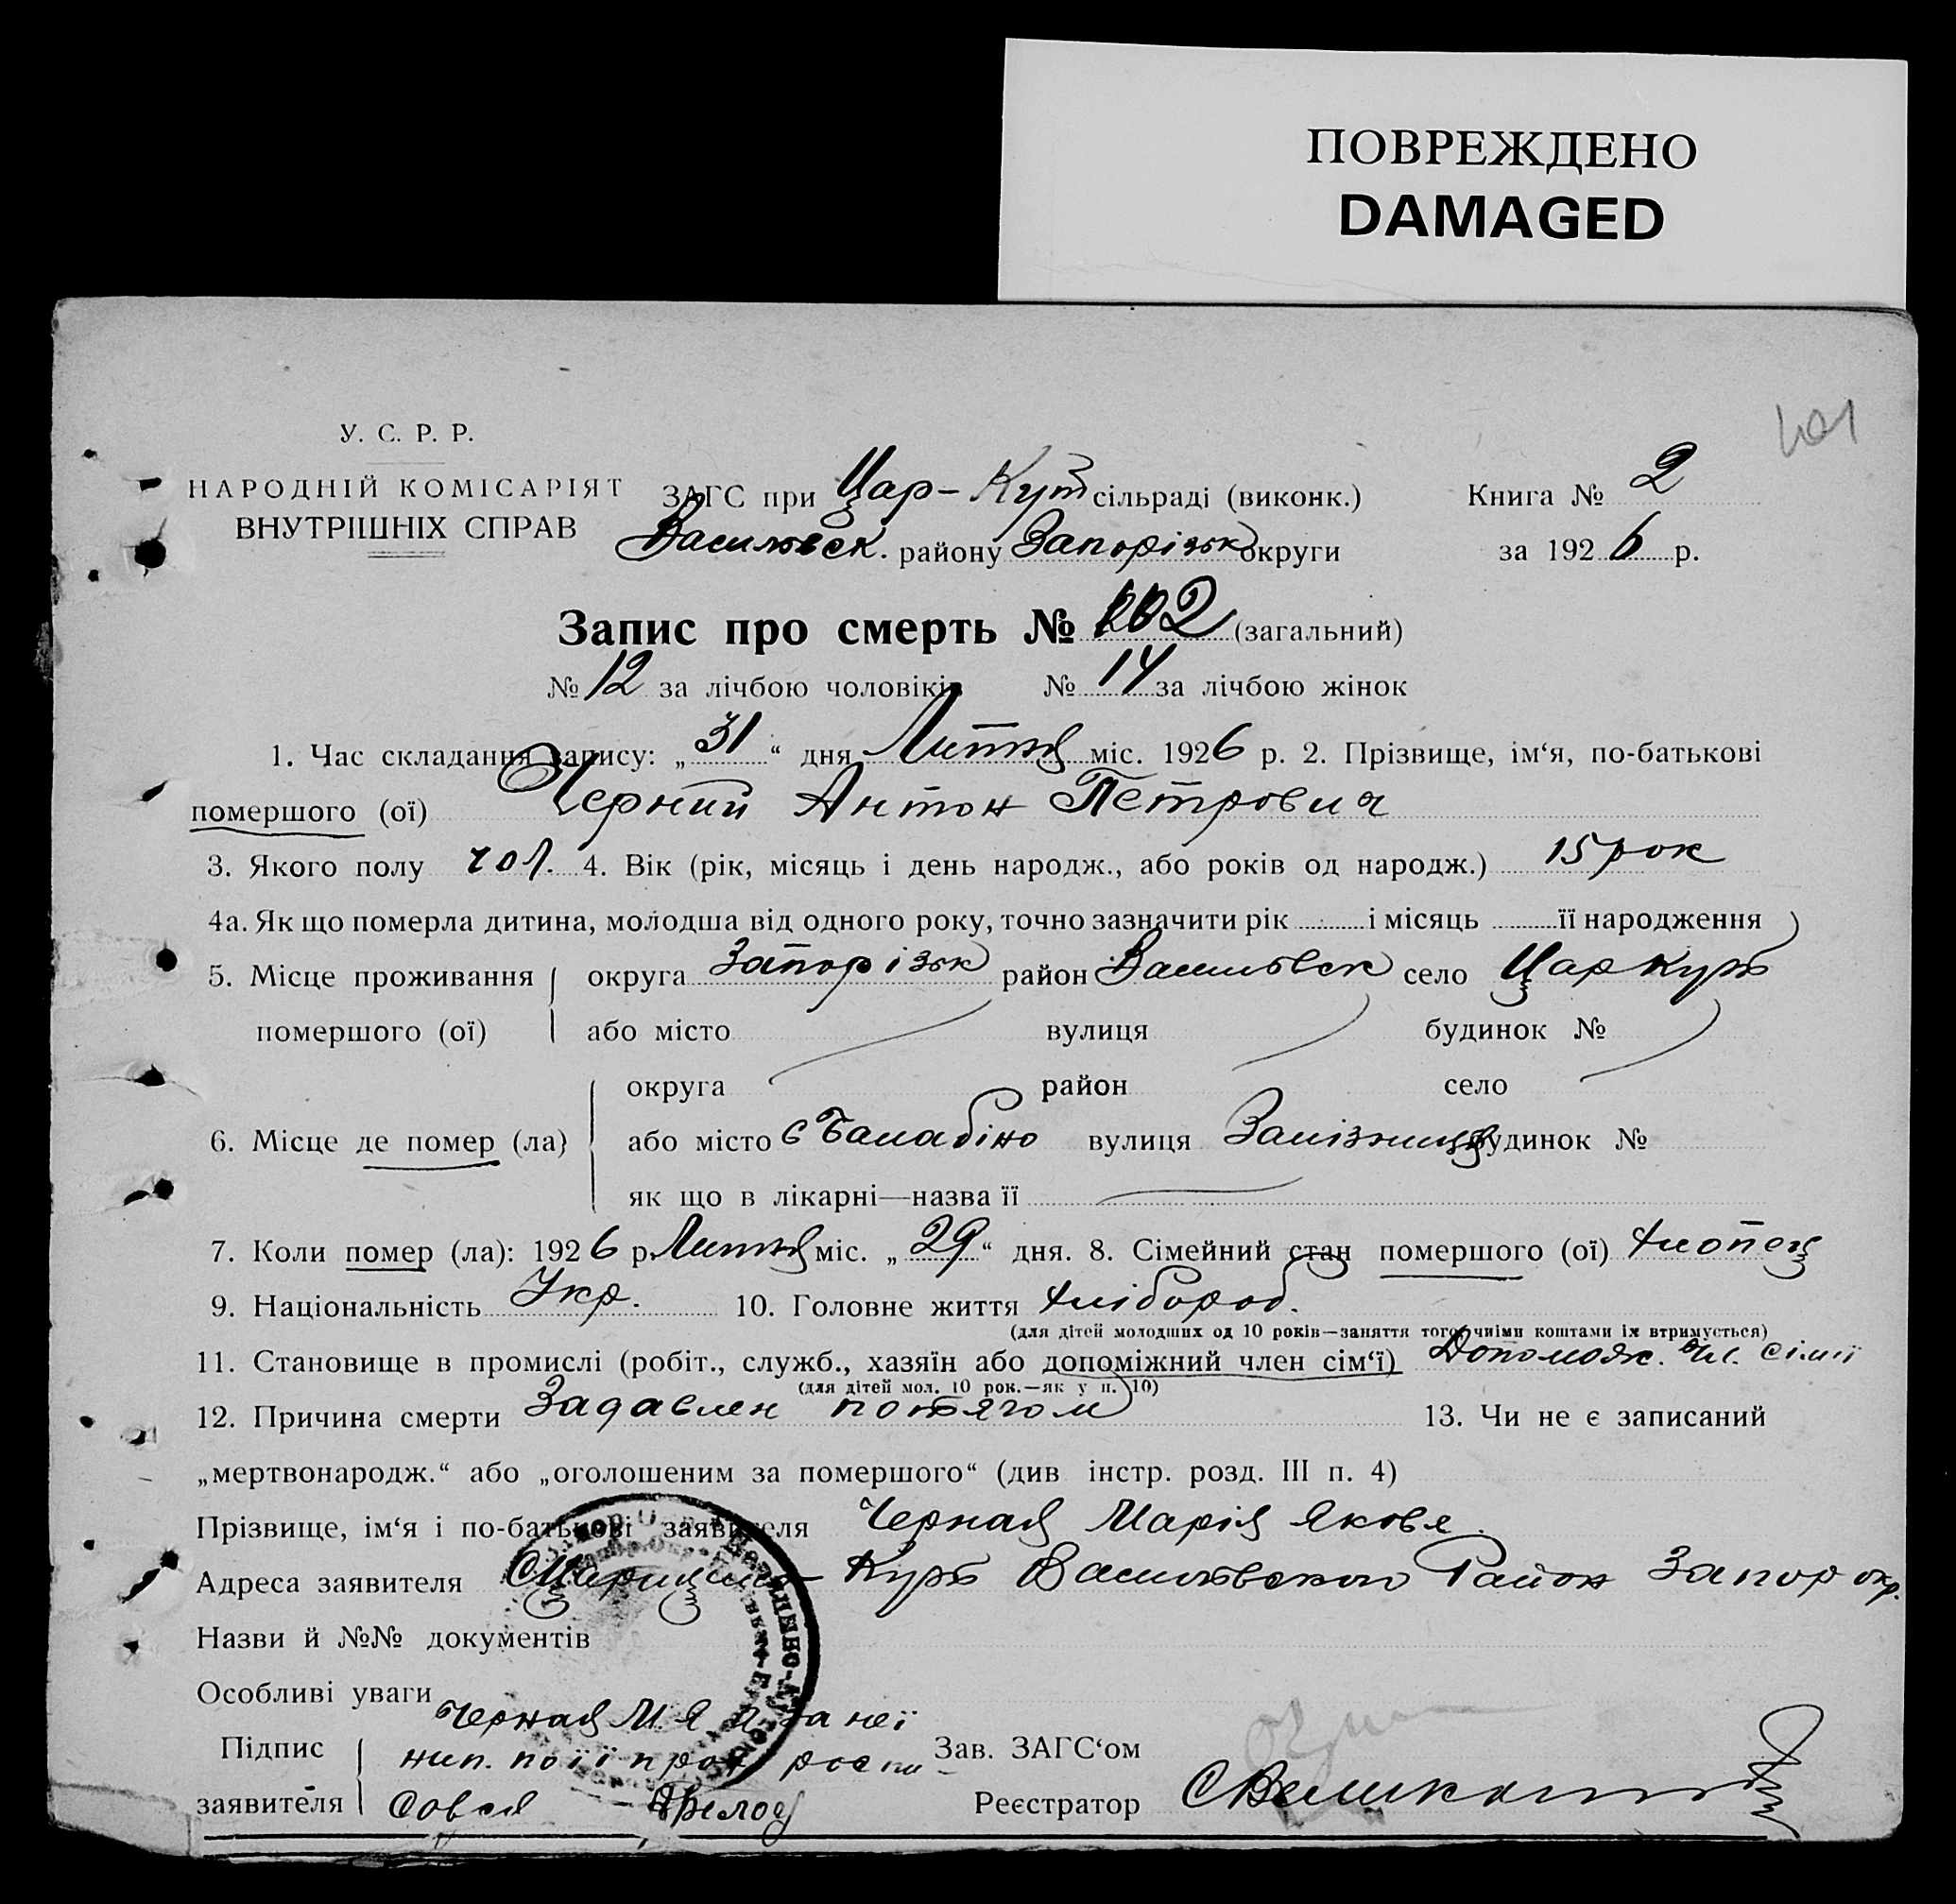 ПОВРЕЖДЕНО
DAMAGED
101
У. С. Р. Р.
НАРОДНІЙ КОМІСАРІЯТ
ВНУТРІШНІХ СПРАВ
ЗАГС при Цар-Кут сільраді (виконк.) Книга № 2
Василівск. району Запорізьк округи за 1926 р.
Запис про смерть № 202 (загальний)
№ 12 за лічбою чоловіків № 14 за лічбою жінок
1. Час складання запису: „31“ дня Липня міс. 1926 р. 2. Прізвище, ім‘я, по-батькові
помершого (ої) Черний Антон Петрович
3. Якого полу чол. 4. Вік (рік, місяць і день народж., або років од народж.) 15 рок
4а. Як що померла дитина, молодша від одного року, точно зазначити рік і місяць її народження
5. Місце проживання округа Запорізьк район Васильвск село Царкут
помершого (ої) або місто вулиця будинок №
округа район село
6. Місце де помер (ла) або місто с Балабіно вулиця Залізниця будинок №
як що в лікарні—назва її
7. Коли помер (ла): 1926 р. Липня міс. „29“ дня. 8. Сімейний стан помершого (ої) хлопець
9. Національність Укр. 10. Головне життя хлібороб.
(для дітей молодших од 10 років—заняття того, чиіми коштами їх втримується)
11. Становище в промислі (робіт., служб., хазяїн або допоміжний член сім‘ї) Допомож. чл. сімії
(для дітей мол. 10 рок.—як у п. 10)
12. Причина смерти Задавлен потягом 13. Чи не є записаний
„мертвонародж.“ або „оголошеним за помершого“ (див інстр. розд. III п. 4)
Прізвище, ім‘я і по-батькові заявителя Черная Марія Яковл.
Адреса заявителя с Царицино-Кут Василівского Район Запор окр.
Назви й №№ документів
Особливі уваги
Черная М. Я. а за неї
Підпис нип. по її прох роспи-
заявителя Зав. ЗАГС‘ом
Реєстратор